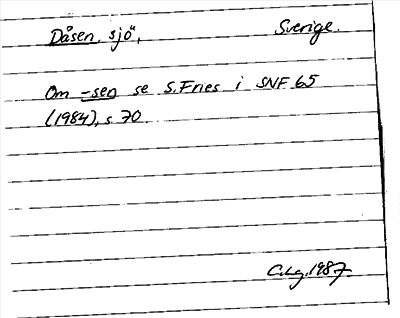 Dåsen, sjö, Sverige.
Om -sen se S. Fries i SNF 65
(1984), s. 70
1987